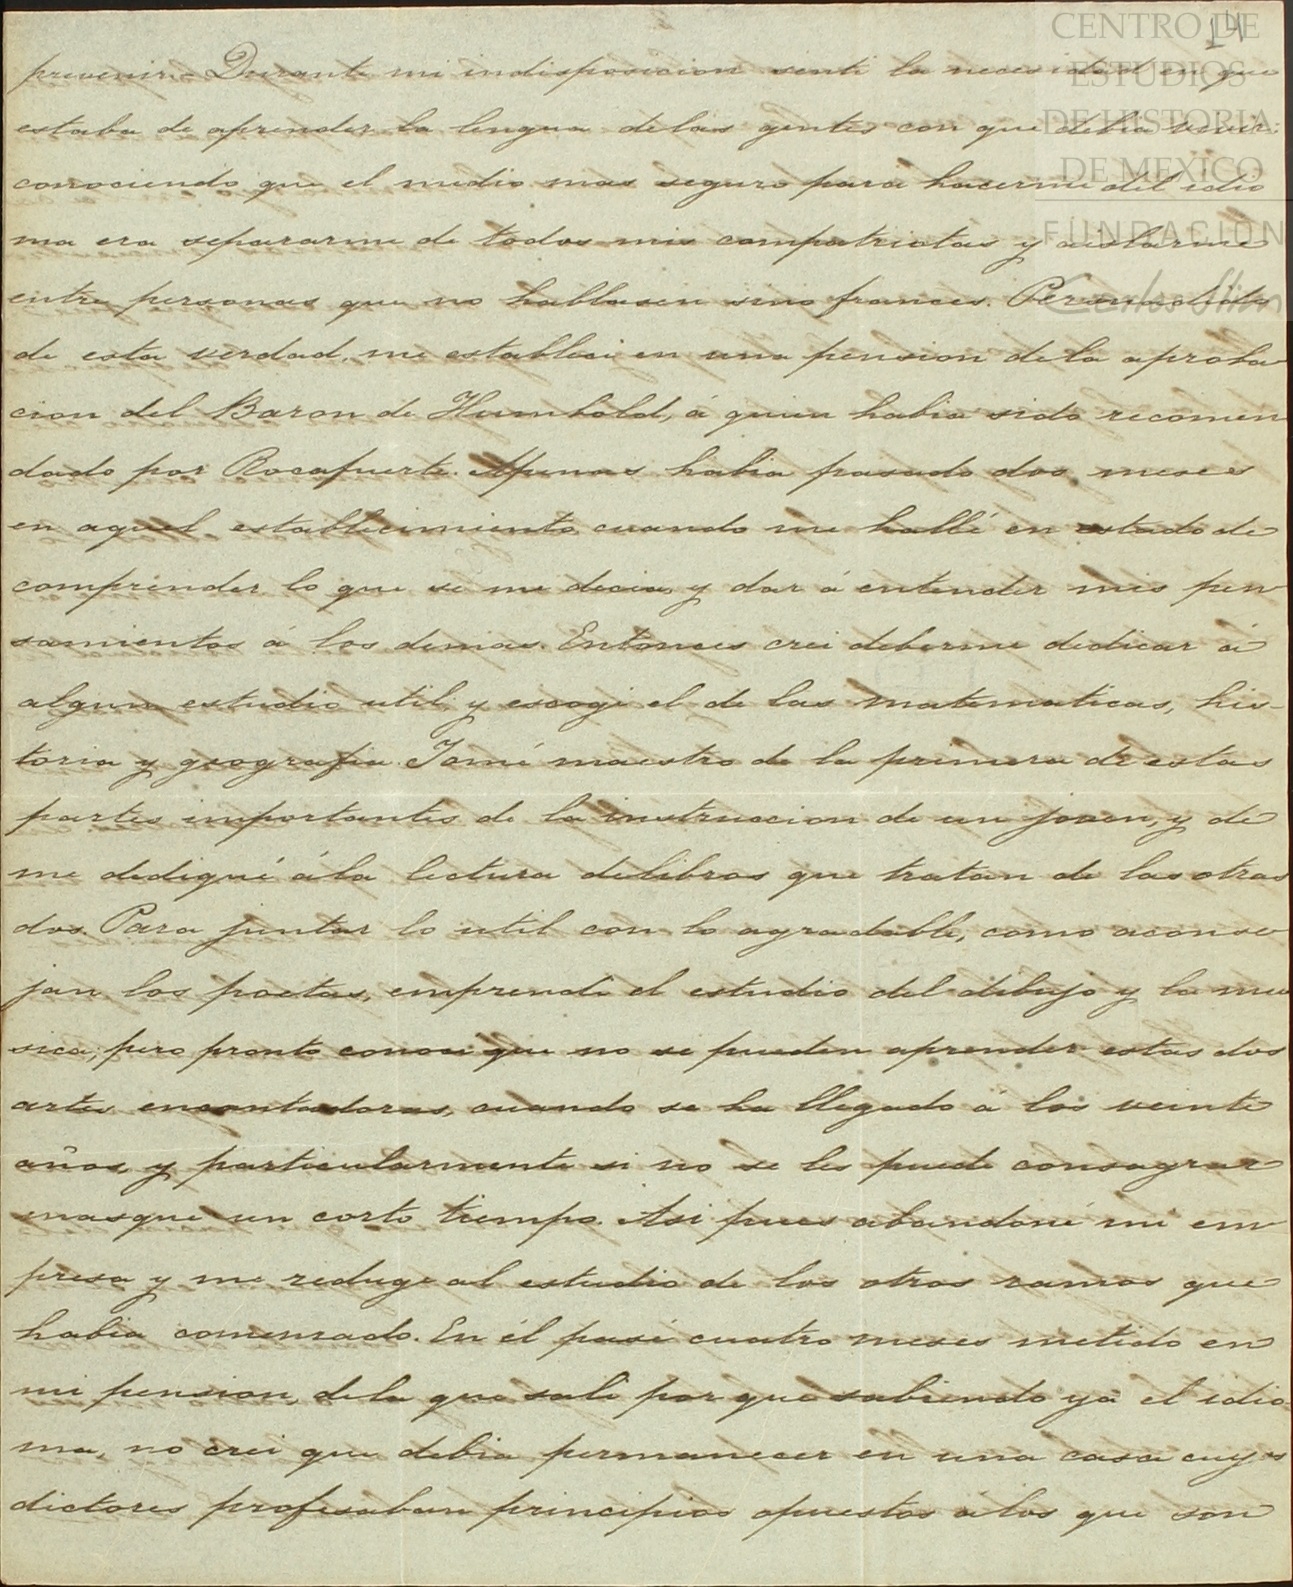 14
CENTRO DE
ESTUDIOS
DE HISTORIA
DE MEXICO
FUNDACIÓN
Carlos Slim
prevenir.- Durante mi indisposicion senti la necesidad en que
estaba de aprender la lengua delas gentes con que debia vivir,
conociendo que el medio mas seguro para hacerme del idio
ma era separarme de todos mis compatriotas y aislarme
entre personas que no hablasen sino frances. Persuadido
de esta verdad, me estableci en una pension de la aproba
cion del Baron de Humbold, á quien habia sido recomen
dado por Rocafuerte. Apenas habia pasado dos meses
en aquel establecimiento cuando me hallé en estado de
comprender lo que se me decia, y dar á entender mis pen
samientos á los demas. Entonces crei deberme dedicar á
algun estudio util y escogi el de las matematicas, his-
toria y geografia. Tomé maestro de la primera de estas
partes importantes de la instruccion de un joven, y de
me dediqué á la lectura delibros que tratan de las otras
dos. Para juntar lo util con lo agradable, como aconse
jan los poetas, emprendi el estudio del dibujo y la mu
sica; pero pronto conoci que no se pueden aprender estas dos
artes encantadoras, cuando se ha llegado á los veinte
años, y particularmente si no se les puede consagrar
masque un corto tiempo. Asi pues abandoné mi em
presa y me reduge al estudio de los otros ramos que
habia comenzado. En él pasé cuatro meses metido en
mi pension, de la que sali por que sabiendo ya el idio
ma, no crei que debia permanecer en una casa cuyos
dictores profesaban principios opuestos á los que son